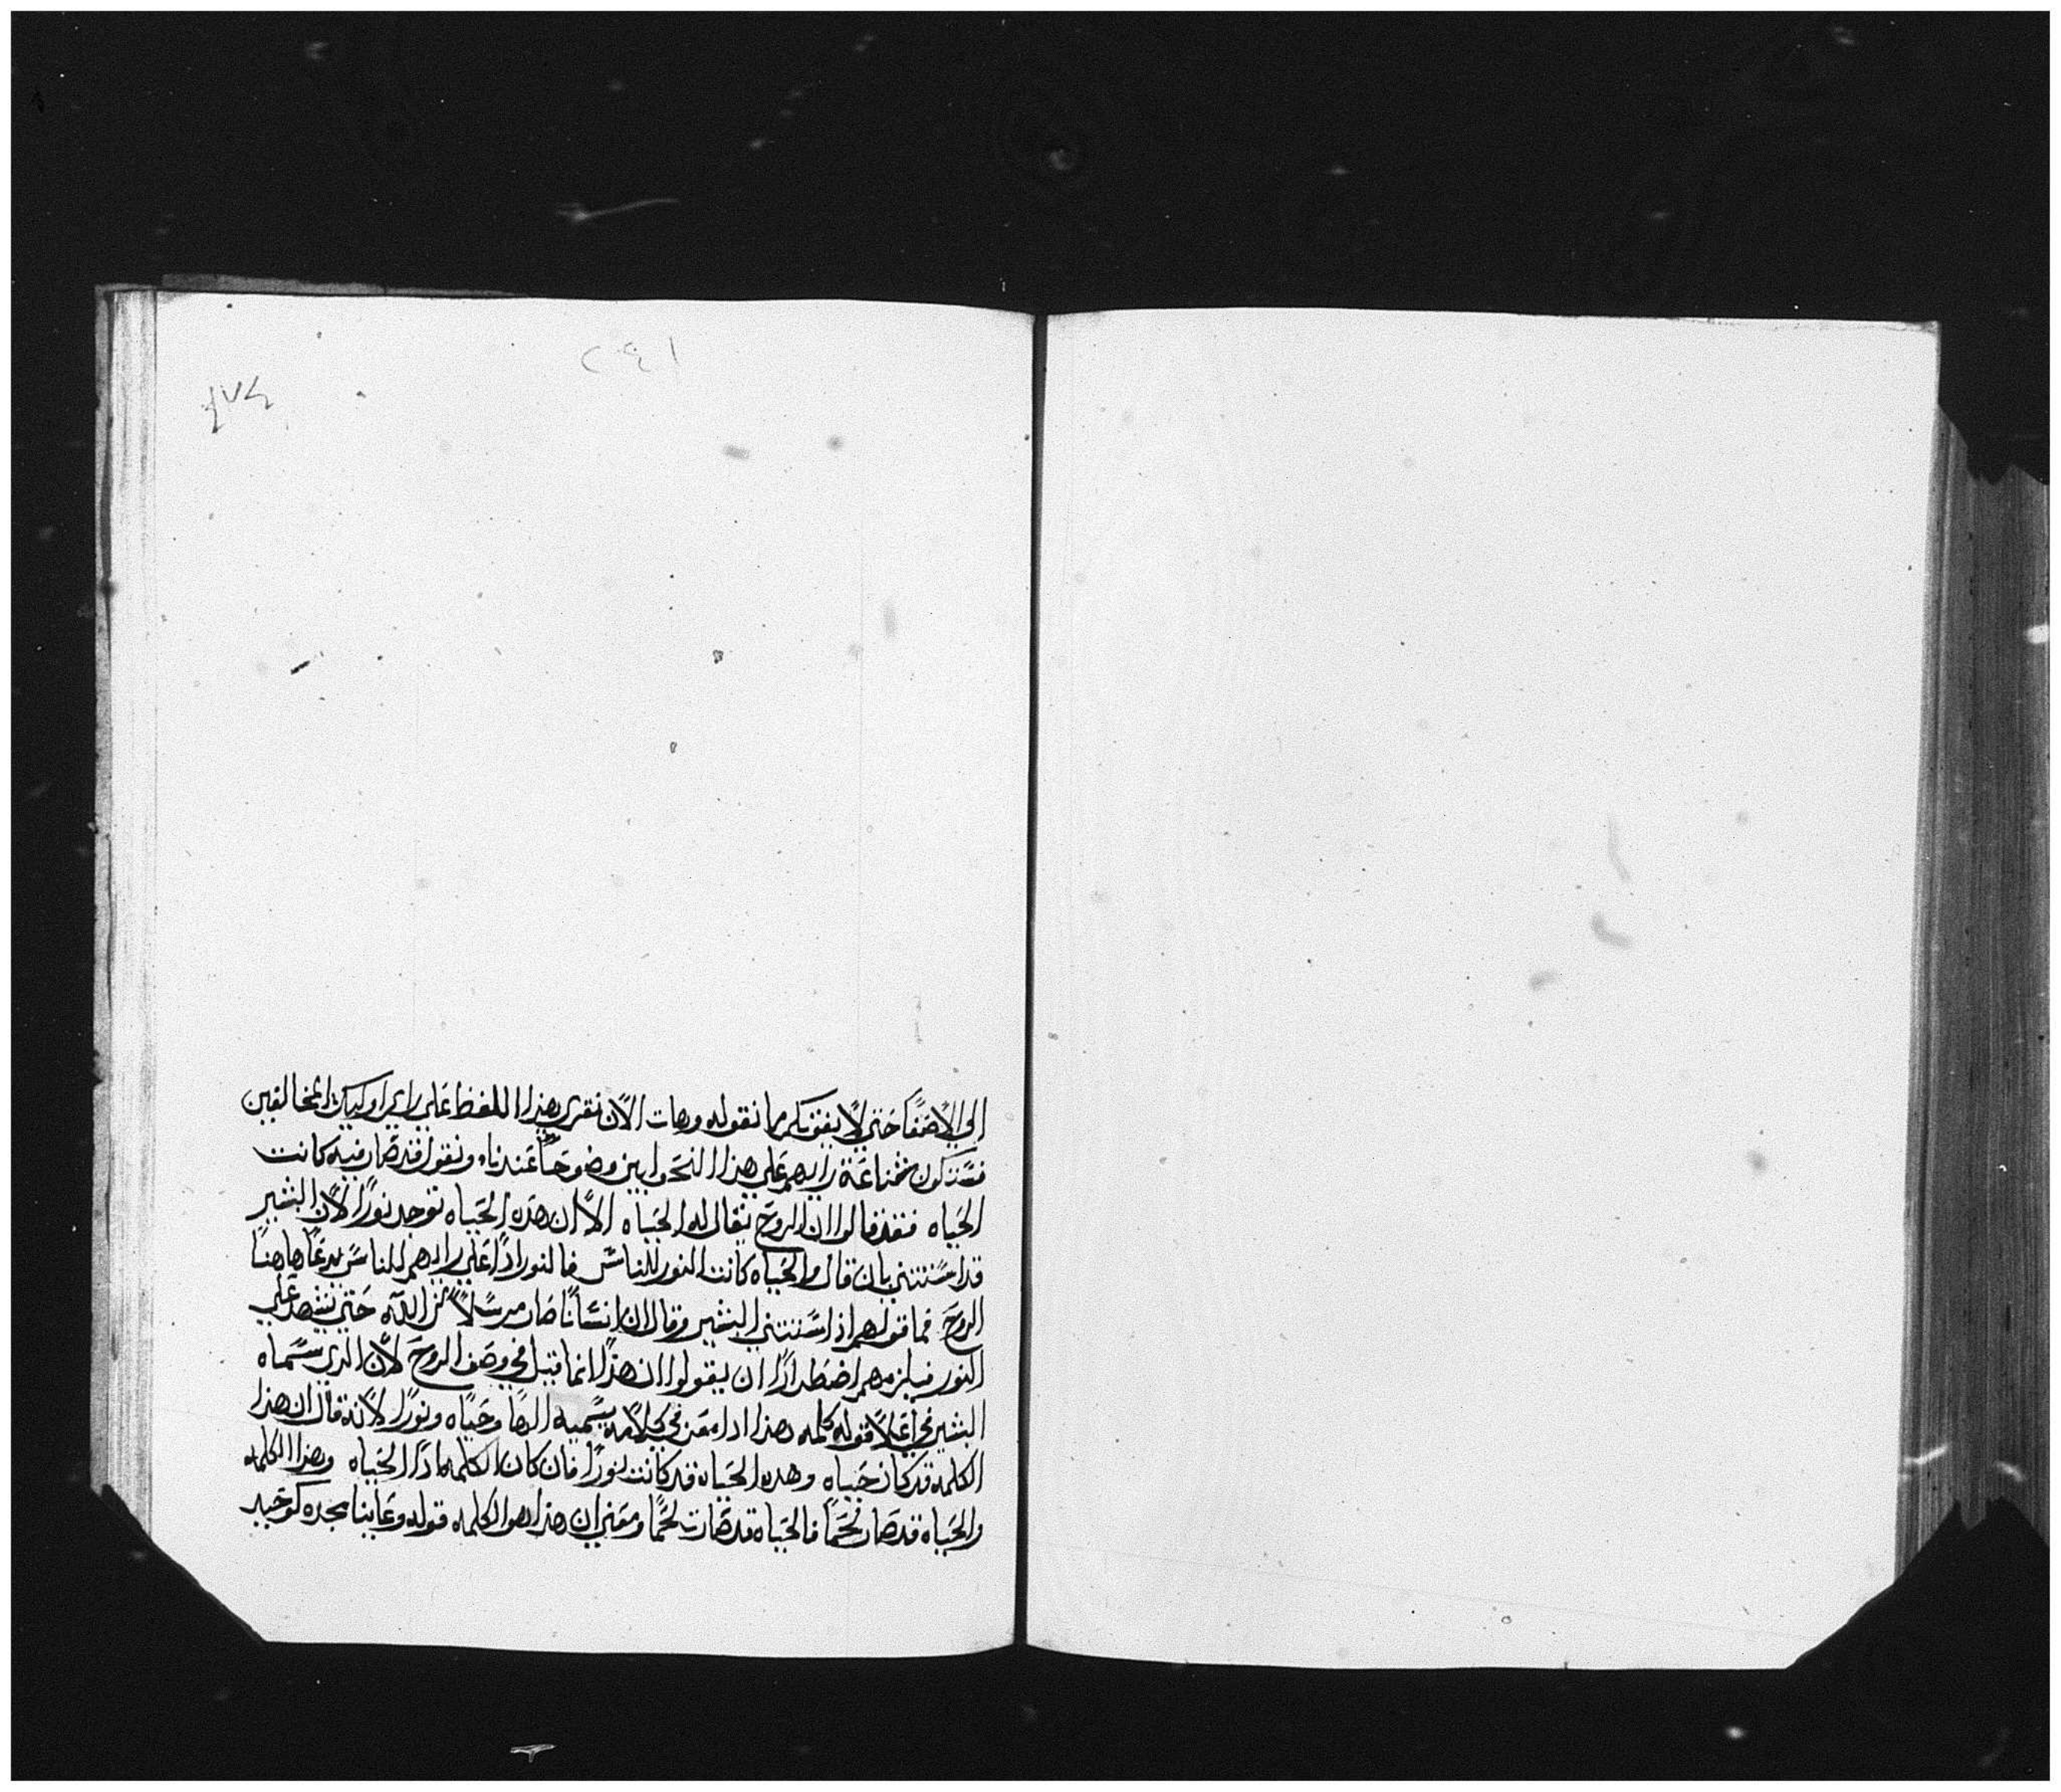 ٢٤١
٤٧٤
الي الاصغا حتي لا يفوتكم ما نقوله وهات الان نقري هذا اللفظ علي راي اوليك المخالفين
فستكون شناعة رايهم علي هذا النحو ابين وضوحا عندنا ونقول قد صار فيه كانت
الحياه فقد قالوا ان الروح يقال له الحياه الا ان هذه الحياه توجد نورا لان البشير
قد استتني بان قال والحياه كانت النور للناس فالنور اذا علي رايهم للناس يدعا هاهنا
الروح فما قولهم اذ استتني البشير وقال ان انسانا صار مرسلا من الله حتي يشهد علي
النور فيلزمهم اضطرارا ان يقولوا ان هذا انما قيل في وصف الروح لان الدي سماه
البشير في اعلا قوله كلمه هذا ادا امعن في كلامه يسميه الها وحياه ونورا لانه قال ان هذا
الكلمه قد كان حياه وهده الحياه قد كانت نورا فان كان الكلمه ادا الحياه وهذا الكلمه
والحياه قد صار لحما فالحياه قد صارت لحما ومعني ان هذا هو الكلمه قوله وعاينا مجده كوحيد